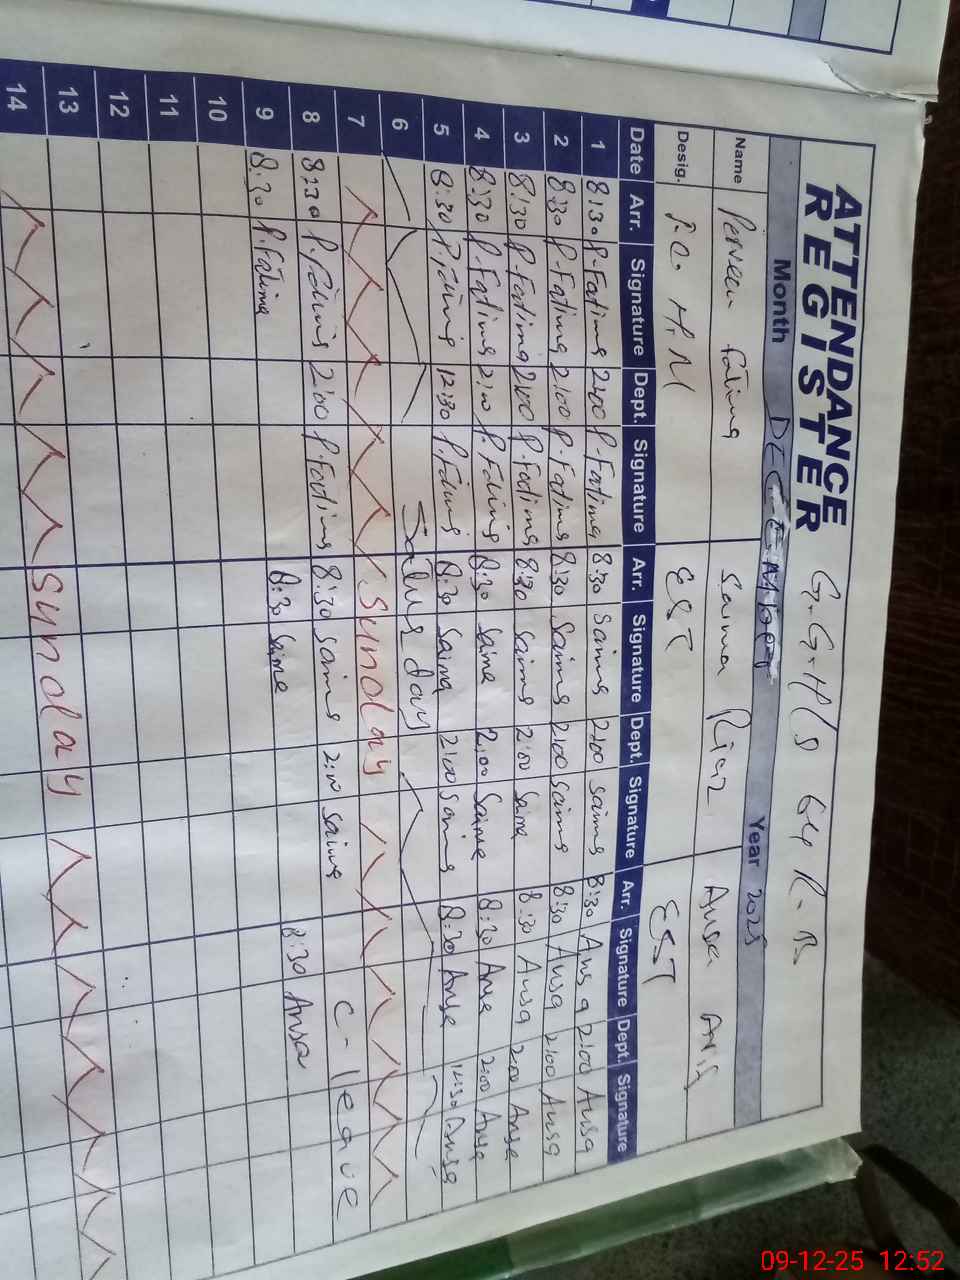 ATTENDANCE REGISTER G.G.H/S
Month DECEMber Year 2025
Name Perveen Fatima Saima Riaz Ansa
Desig. I.C. H.M EST EST
Date Arr. Signature Dept. Signature Arr. Signature Dept. Signature Arr. Signature Dept. Signature
1 8:30 P-Fatima 2:00 P-Fatima 8:30 Saima 2:00 Saima 8:30 Ansa 2:00 Ansa
2 8:30 P-Fatima 2:00 P-Fatima 8:30 Saima 2:00 Saima 8:30 Ansa 2:00 Ansa
3 8:30 P-Fatima 2:00 P-Fatima 8:30 Saima 2:00 Saima 8:30 Ansa 2:00 Ansa
4 8:30 P-Fatima 2:00 P-Fatima 8:30 Saima 2:00 Saima 8:30 Ansa 2:00 Ansa
5 8:30 P.Fatima 12:30 P.Fatima 8:30 Saima 2:00 Saima 8:30 Ansa Ansa
6 day
7 Sunday
8 8:30 P.Fatima 2:00 P.Fatima 8:30 Saima 2:00 Saima C-leave
9 8:30 P.Fatima 8:30 Saima 8:30 Ansa
10
11
12
13
14 Sunday
09-12-25 12:52